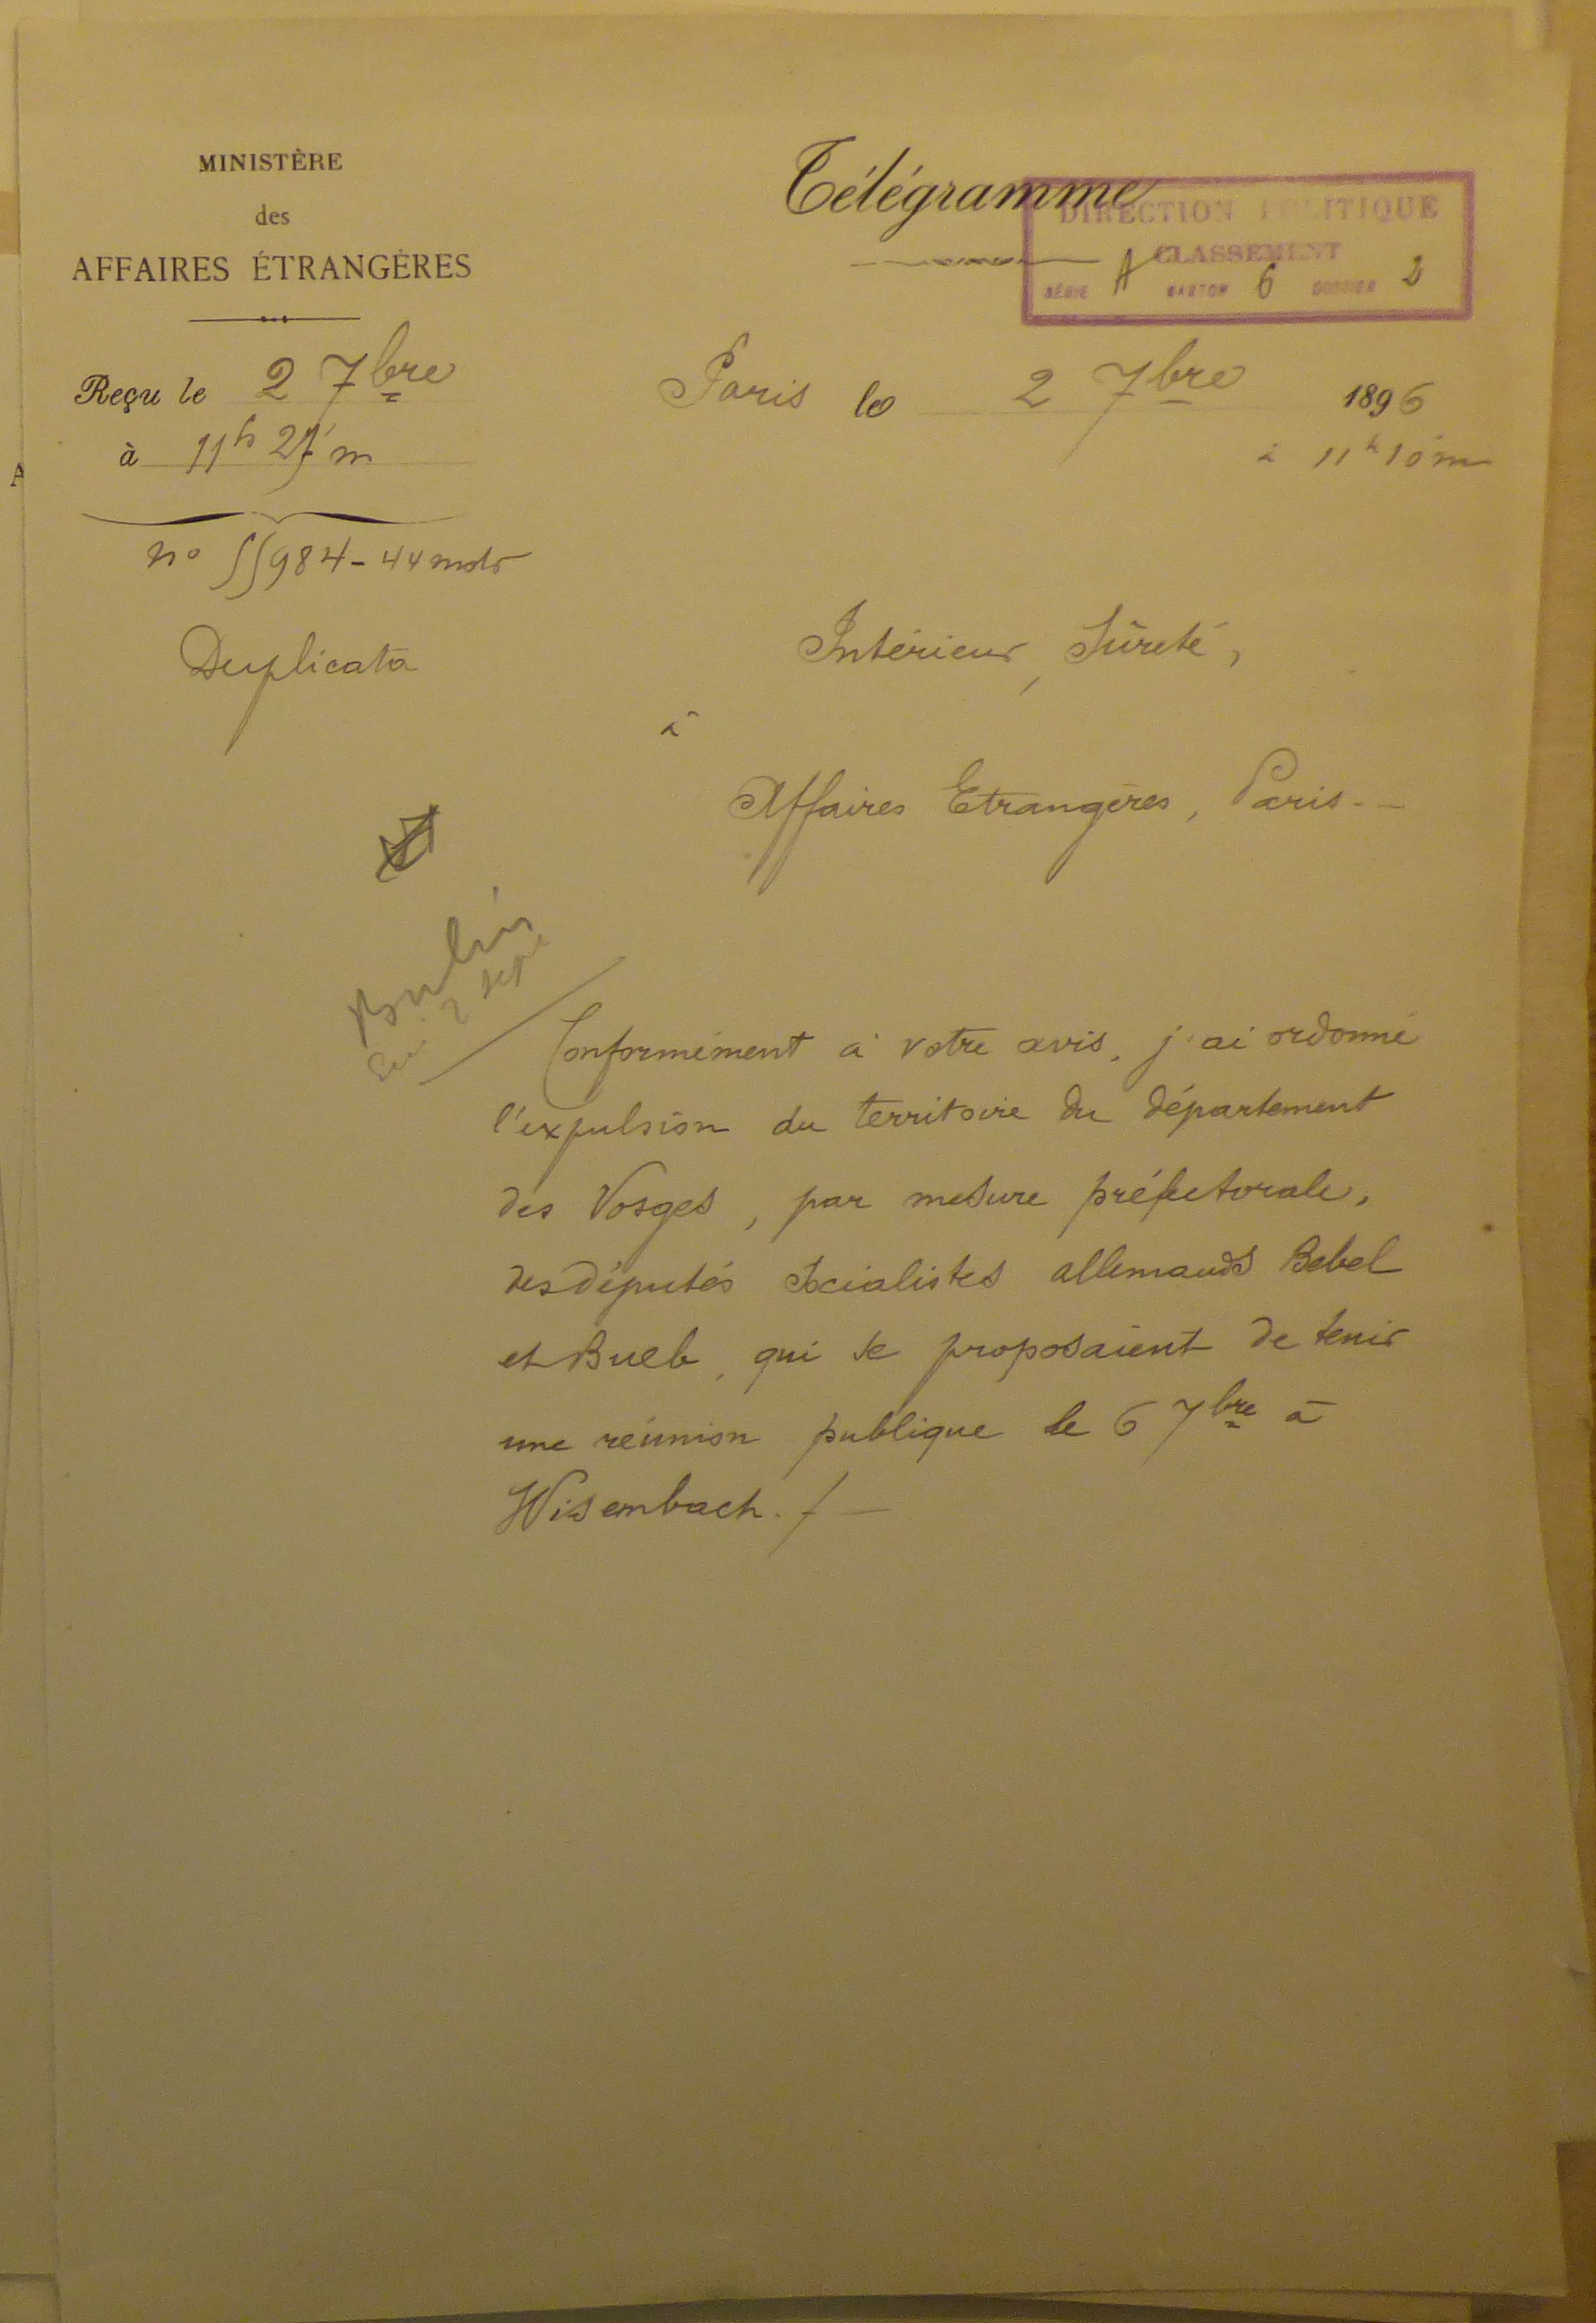 MINISTÈRE
des
AFFAIRES ÉTRANGÈRES
Reçu le 2 7bre
à 11h 27' m
no 55984 - 44 mots
Duplicata
Télégramme
DIRECTION POLITIQUE
CLASSEMENT
SÉRIE A CARTON 6 DOSSIER 2
Paris le 2 7bre 1896
à 11h 10 m
Intérieur, Sûreté,
à
Affaires Etrangères, Paris. —
Berlin
2 sept
Conformément à votre avis, j'ai ordonné
l'expulsion du territoire du département
des Vosges, par mesure préfectorale,
des députés socialistes allemands Bebel
et Bueb, qui se proposaient de tenir
une réunion publique le 6 7bre à
Wisembach. /-